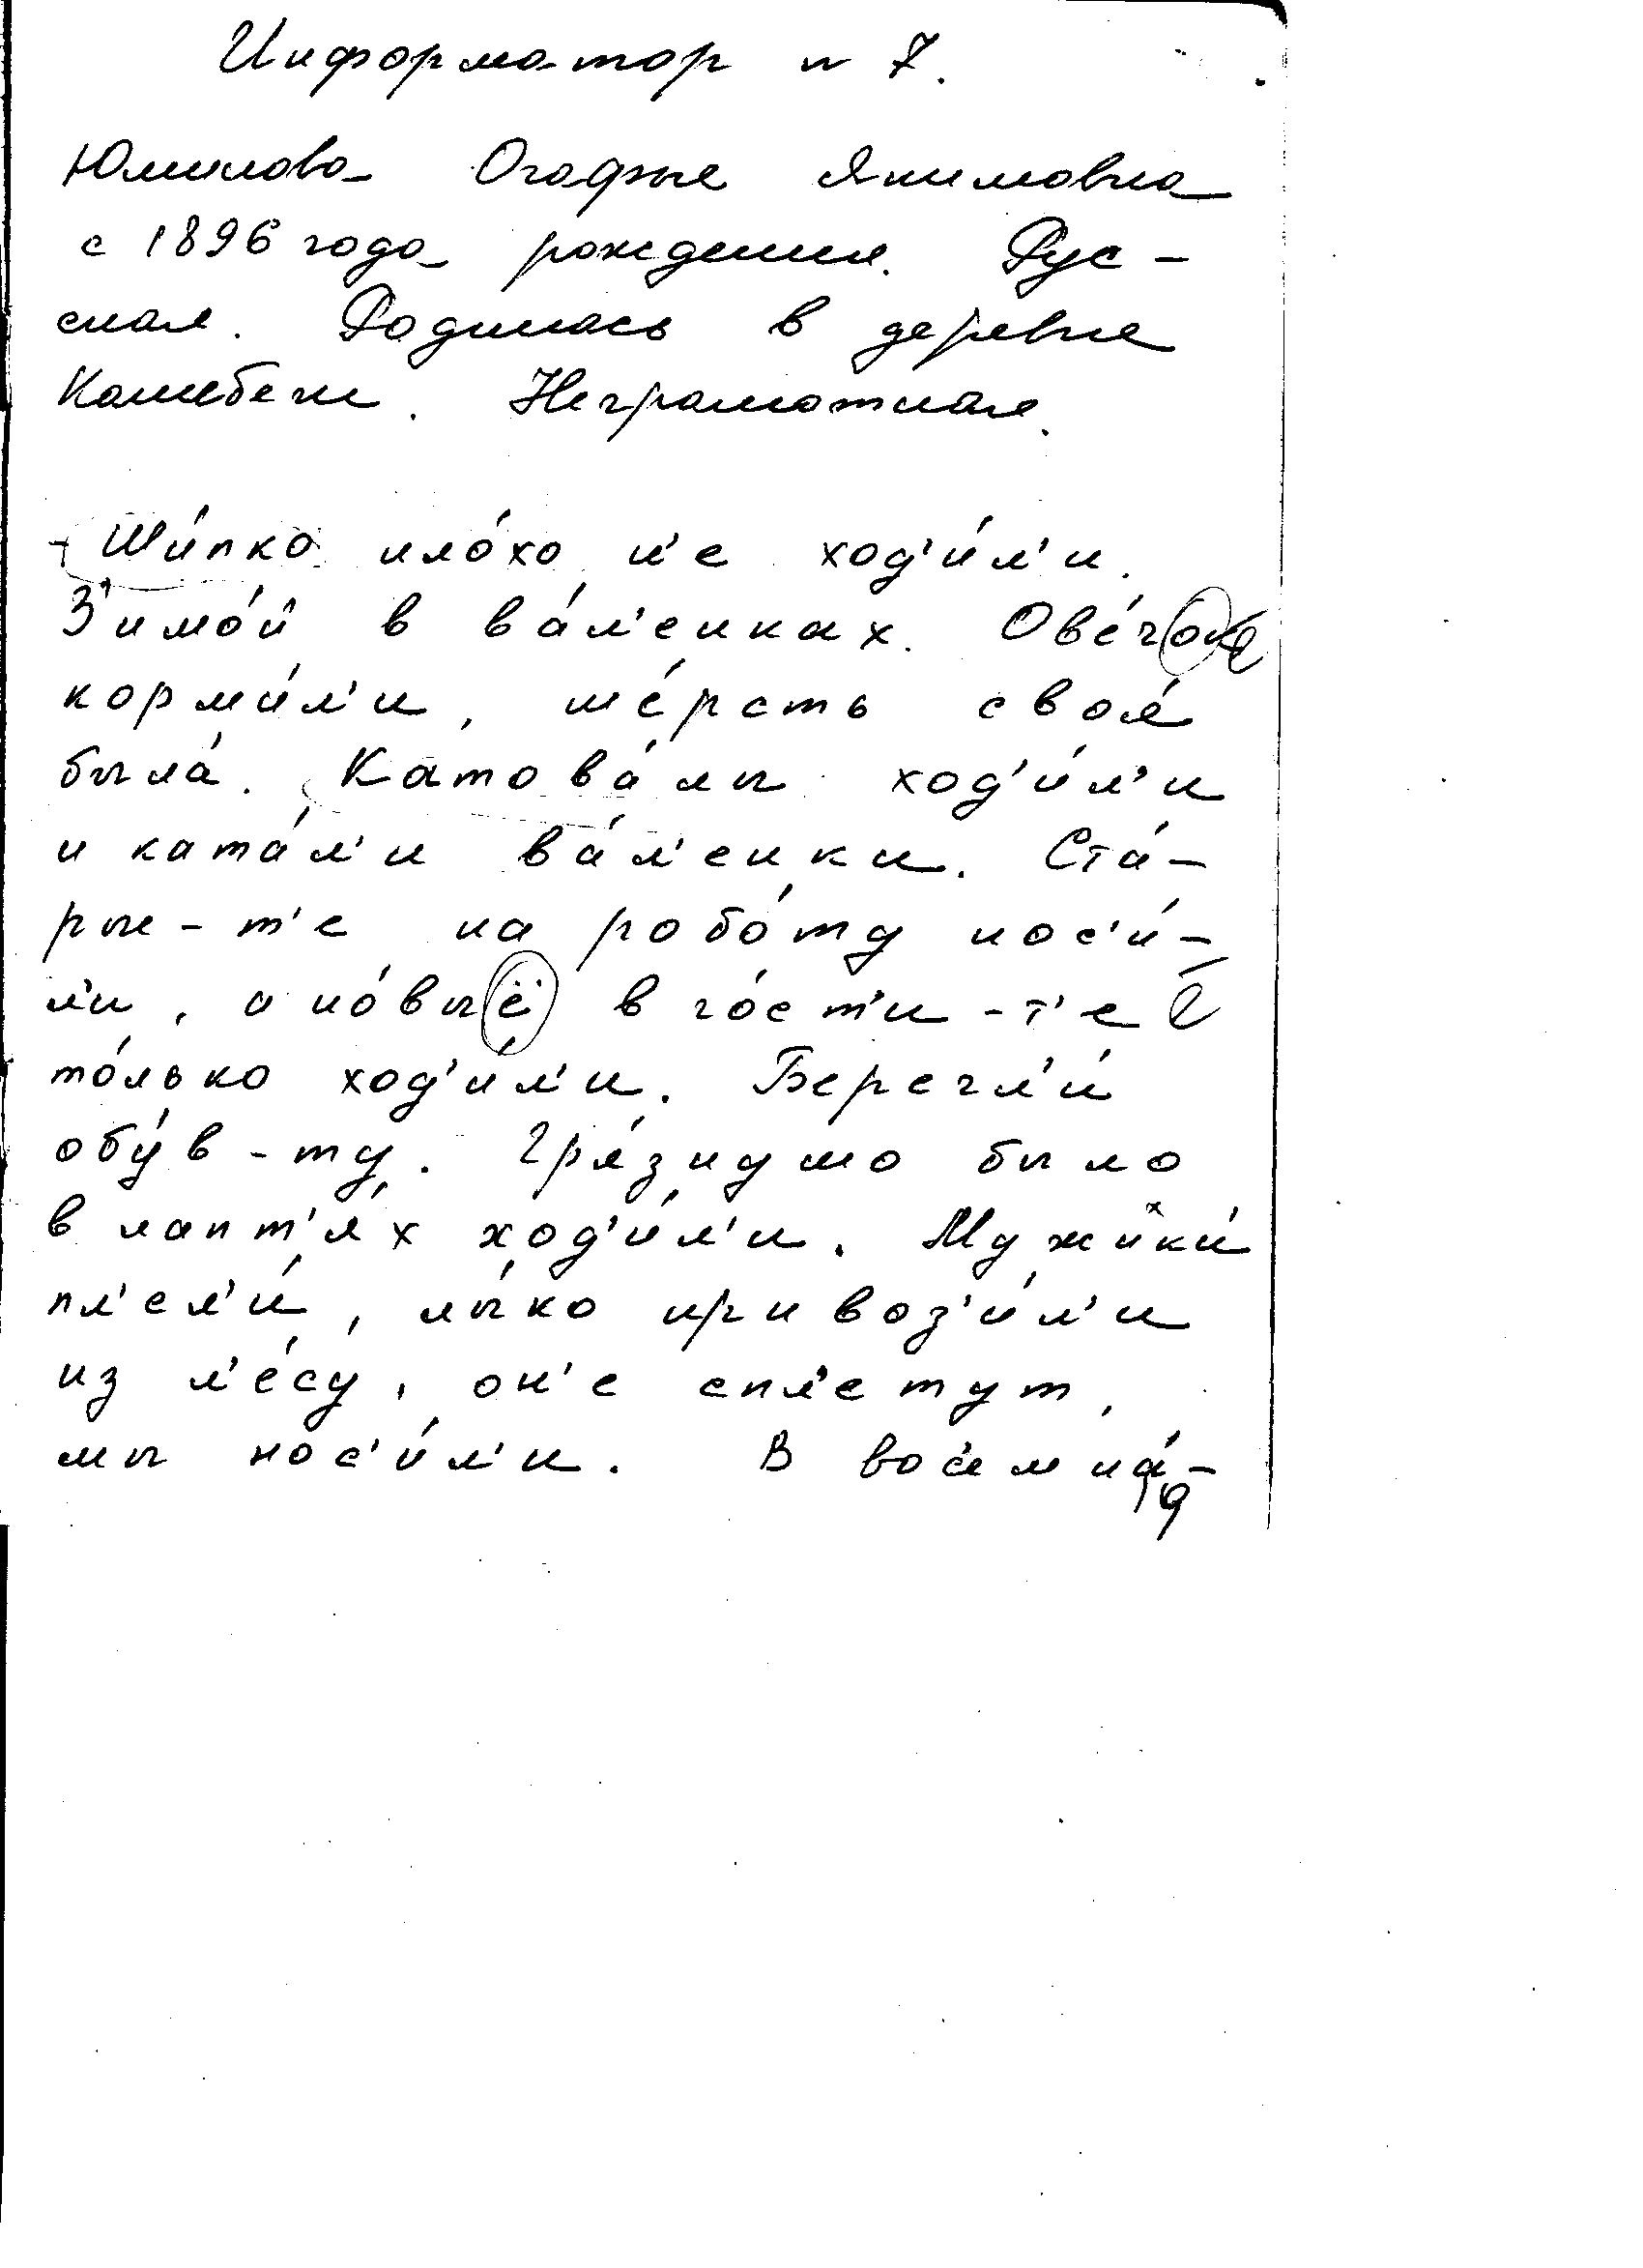 Информатор № 7.
Юшкова Огафья Якимовна
с 1896 года рождения. Рус-
ская. Родилась в деревне
Неграмотная.
- Ши́пко пло́хо н'е ход'и́л'и.
З'имо́й в ва́л'енках. Ове́чок
корми́л'и, ше́рсть своя́
была́. Катова́лы ход'и́л'и
и ката́л'и ва́л'енки. Ста́-
рые-т'е на робо́ту нос'и́-
л'и, а но́выё в го́ст'и-т'е
то́лько ход'и́л'и. Берегл'и́
обу́в-ту. Гря́зидмо было
в лапт'я́х ход'и́л'и. Мужики́
пл'ел'и́, лы́ко привоз'и́л'и
из л'е́су, он'е спл'етут,
мы нос'и́л'и. В вос'емна́-
19